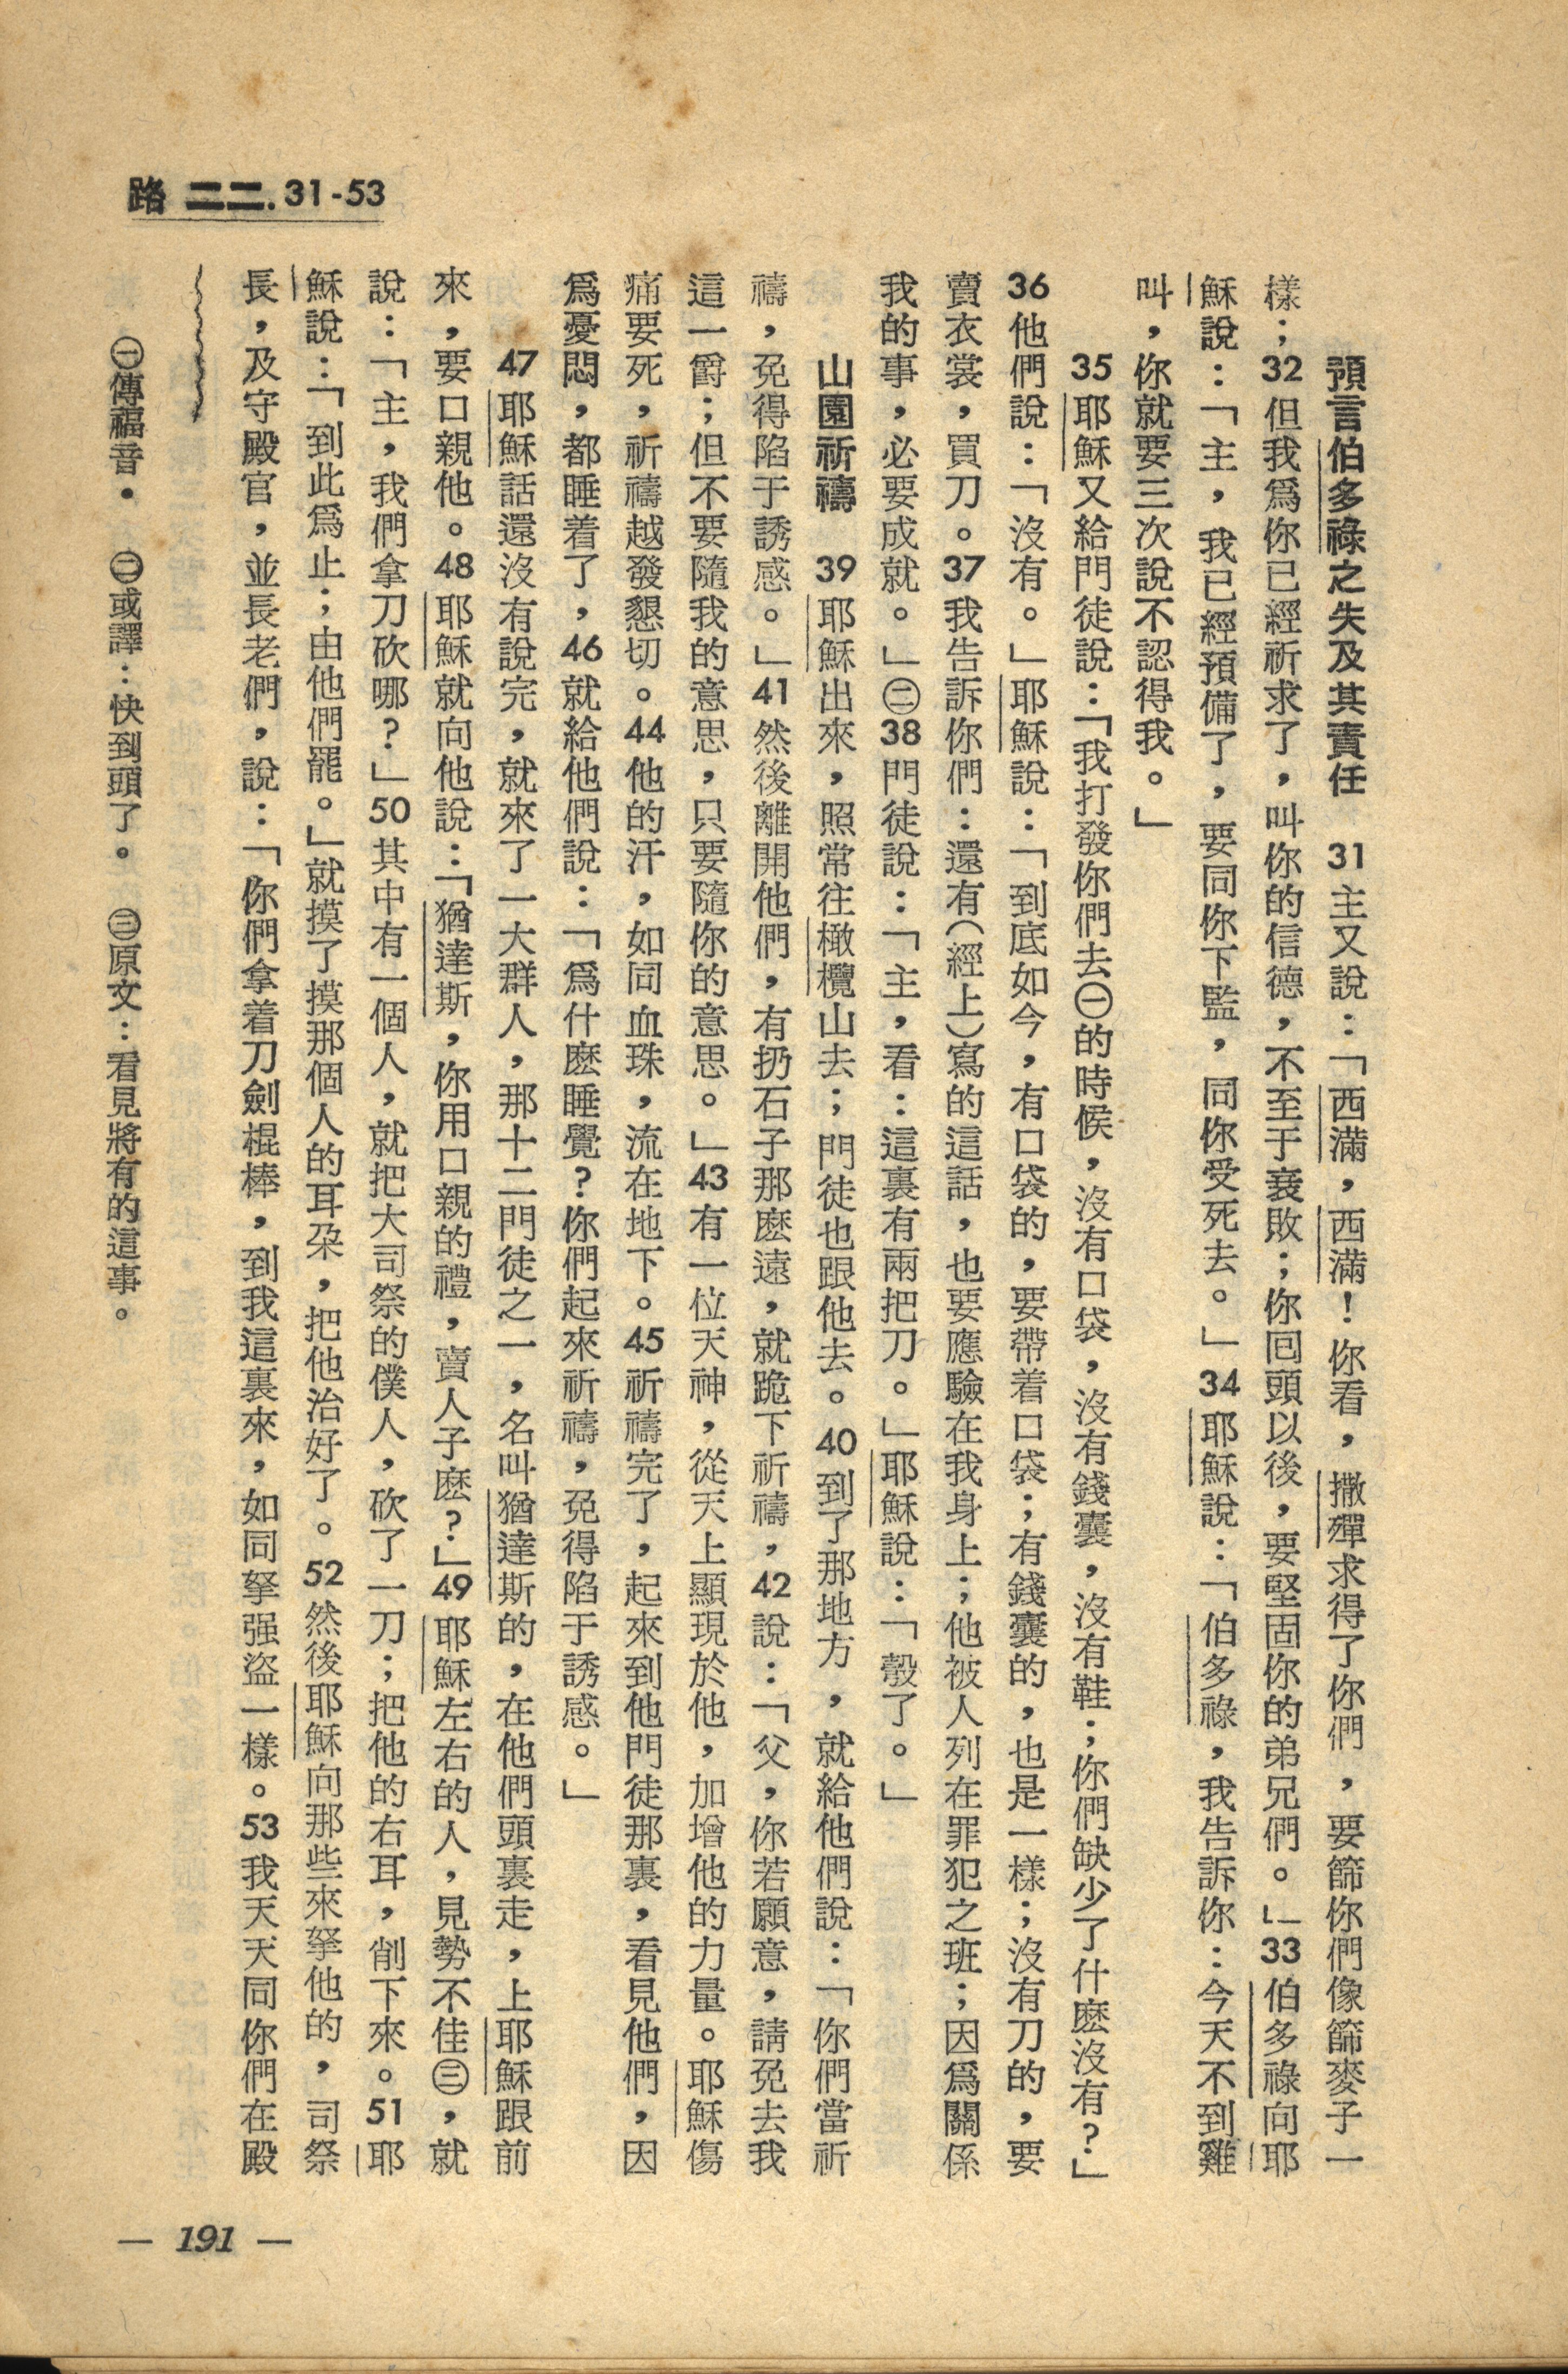 路 二二. 31-53
預言伯多祿之失及其責任　31主又說：「西滿，西滿！你看，撒殫求得了你們，要篩你們像篩麥子一
樣；32但我爲你已經祈求了，叫你的信德，不至于衰敗；你回頭以後，要堅固你的弟兄們。」33伯多祿向耶
穌說：「主，我已經預備了，要同你下監，同你受死去。」34耶穌說：「伯多祿，我告訴你：今天不到雞
叫，你就要三次說不認得我。」
35耶穌又給門徒說：「我打發你們去㊀的時候，沒有口袋，沒有錢囊，沒有鞋；你們缺少了什麽沒有？」
36他們說：「沒有。」耶穌說：「到底如今，有口袋的，要帶着口袋；有錢囊的，也是一樣；沒有刀的，要
賣衣裳，買刀。37我告訴你們：還有（經上）寫的這話，也要應驗在我身上；他被人列在罪犯之班；因爲關係
我的事，必要成就。」㊁38門徒說：「主，看：這裏有兩把刀。」耶穌說：「彀了。」
山園祈禱　39耶穌出來，照常往橄欖山去；門徒也跟他去。40到了那地方，就給他們說：「你們當祈
禱，免得陷于誘感。」41然後離開他們，有扔石子那麽遠，就跪下祈禱，42說：「父，你若願意，請免去我
這一爵；但不要隨我的意思，只要隨你的意思。」43有一位天神，從天上顯現於他，加增他的力量。耶穌傷
痛要死，祈禱越發懇切。44他的汗，如同血珠，流在地下。45祈禱完了，起來到他門徒那裏，看見他們，因
爲憂悶，都睡着了，46就給他們說：「爲什麽睡覺？你們起來祈禱，免得陷于誘感。」
47耶穌話還沒有說完，就來了一大群人，那十二門徒之一，名叫猶達斯的，在他們頭裏走，上耶穌跟前
來，要口親他。48耶穌就向他說：「猶達斯，你用口親的禮，賣人子麽？」49耶穌左右的人，見勢不佳㊂，就
說：「主，我們拿刀砍哪？」50其中有一個人，就把大司祭的僕人，砍了一刀；把他的右耳，削下來。51耶
穌說：「到此爲止；由他們罷。」就摸了摸那個人的耳朶，把他治好了。52然後耶穌向那些來拏他的，司祭
長，及守殿官，並長老們，說：「你們拿着刀劍棍棒，到我這裏來，如同拏强盜一樣。53我天天同你們在殿
㊀傳福音。　㊁或譯：快到頭了。　㊂原文：看見將有的這事。
— 191 —